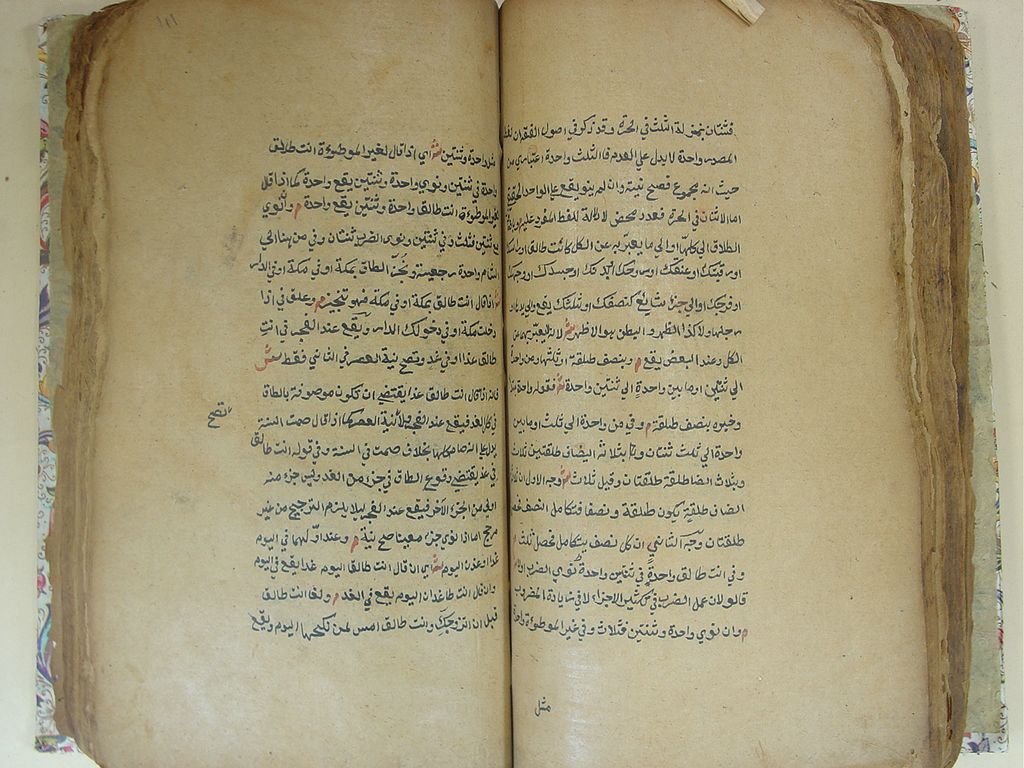 فثنتان بمنزلة الثلث في الحرة وقد ذكر في اصول الفقه ان لفظ
المصدر واحد لا يدل على العدد فالثلث واحدة اعتباري من
حيث انه مجموع فصح نيته وان لم ينو يقع على الواحد الحقيقي
اما الاثنان في الحرة فعدد محض لا دلالة للفظ المفرد عليه
الطلاق الى كلها او الى ما يعبر به عن الكل كانت طالق او راسك
او رقبتك او عنقك او روحك او بدنك او جسدك او وجهك
او فرجك او الى جزء شايع كنصفك او ثلثك يقع والى يدها او
رجلها ولا كذا الظهر والبطن هو الاظهر ش لانه لا يعبر بهما عن
الكل وعند البعض يقع م وبنصف طلقة او ثلثها ومن واحدة
الى ثنتين او ما بين واحدة الى ثنتين واحدة ش فقوله واحدة مبتدا
وخبره بنصف طلقة م وفي من واحدة الى ثلث او ما بين
واحدة الى ثلث ثنتان وبثلاثة انصاف طلقتين ثلاث
وبثلاث انصاف طلقة طلقتان وقيل ثلاث ش وجه الاول ان ثلاثة
انصاف طلقة يكون طلقة ونصفا فتكامل النصف فصار
طلقتان وجه الثاني ان كل نصف يتكامل فحصل ثلث م
وفي انت طالق واحدة في ثنتين واحدة نوى الضرب او لا
قالوا لان عمل الضرب في تكثير الاجزاء لا في زيادة المضروب
م وان نوى واحدة وثنتين فثلاث وفي غير الموطوءة واحدة
مثل
مثل واحدة وثنتين ش اي اذا قال لغير الموطوءة انت طالق
واحدة في ثنتين ونوى واحدة وثنتين يقع واحدة كما اذا قال
لغير الموطوءة انت طالق واحدة وثنتين يقع واحدة م وان نوى
مع ثنتين فثلث وفي ثنتين ونوى الضرب ثنتان وفي من هنا الى
الشام واحدة رجعية وتنجز الطلاق بمكة او في مكة او في الدار
ش اذا قال انت طالق بمكة او في مكة فهو تنجيز م وعلق في اذا
دخلت مكة او في دخولك الدار ويقع عند الفجر في انت
طالق غدا او في غد وتصح نية العصر في الثاني فقط ش
فانه اذا قال انت طالق غدا يقتضي ان تكون موصوفة بالطلاق
في كل الغد فيقع عند الفجر ولا نية العصر كما اذا قال صمت السنة
تصح
يدل على انه صام كلها بخلاف صمت في السنة وفي قوله انت طالق
في غد يقتضي وقوع الطلاق في جزء من الغد وليس جزء منه
اولى من الجزء الآخر فيقع عند الفجر ليلا يلزم الترجيح من غير
مرجح اما اذا نوى جزء معينا صح نيته م وعند اولهما في اليوم
غدا او غدا اليوم ش اي ان قال انت طالق اليوم غدا يقع في اليوم
وان قال انت طالق غدا اليوم يقع في الغد م ولغا انت طالق
قبل ان اتزوجك وانت طالق امس لمن نكحها اليوم ويقع